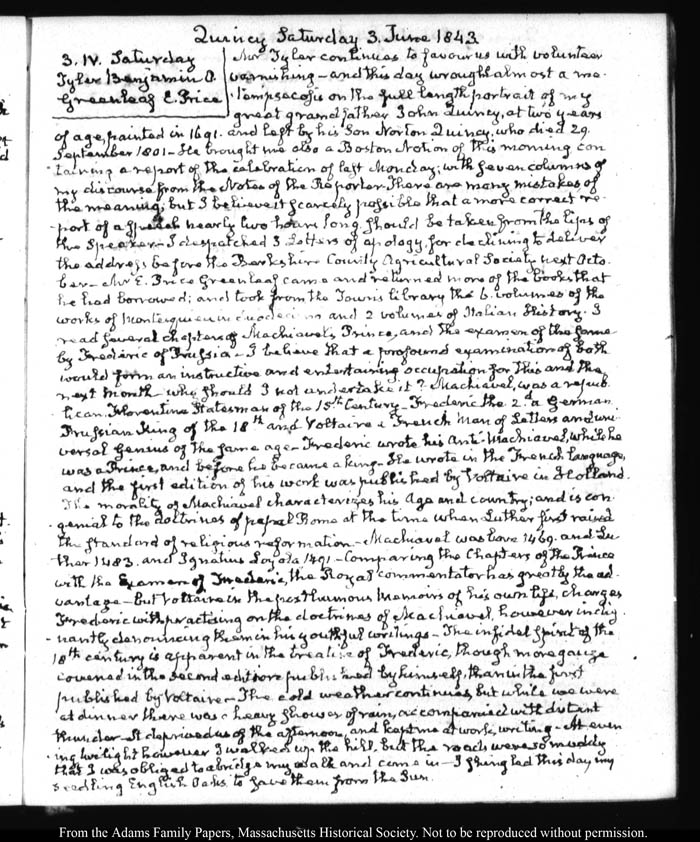 Quincy Saturday 3. June 1843.
3. IV. Saturday
Tyler Benjamin O.
Greenleaf E. Price
Mr Tyler continues to favour us with volunteer
varnishing – and this day wrought almost a me-
-tempsecosis on the full length portrait of my
great grandfather John Quincy, at two years
of age, painted in 1691. and left by his Son Norton Quincy, who died 29.
September 1801 – He brought me also a Boston Notion of this morning con
taining a report of the celebration of last Monday; with seven columns of
my discourse from the Notes of the Reporter. There are many mistakes of
the meaning; but I believe it scarcely possible that a more correct re-
-port of a speech nearly two hours long, should be taken from the lips of
the Speaker – I despatched 3 Letters of apology, for declining to deliver
the address before the Berkshire County Agricultural Society next Octo-
ber – Mr E. Price Greenleaf came and returned more of the books that
he had borrowed; and took from the Town's library the 6. volumes of the
works of Montesquieu in duodecimo and 2 volumes of Italian History. I
read several chapters of Machiavel's Prince, and the examen of the same
by Frederic of Prussia – I believe that a profound examination of both
would form an instructive and entertaining occupation for this and the
next month – why should I not undertake it? Machiavel, was a repub
lican Florentine Statesman of the 15th Century – Frederic the 2d a German
Prussian King of the 18th and Voltaire a French man of Letters and uni-
versal Genius of the same age – Frederic wrote his Anti-Machiavel, while he
was a Prince, and before he became a king – He wrote in the French language,
and the first edition of his work was published by Voltaire in Holland.
The morality of Machiavel characterizes his Age and country; and is con
-genial to the doctrines of papal Rome at the time when Luther first raised
the standard of religious reformation – Machiavel was born 1469. and Lu
ther 1483. and Ignatius Loyola 1491 – Comparing the Chapters of the Prince
with the Examen of Frederic, the Royal commentator has greatly the ad-
vantage – but Voltaire in the posthumous Memoirs of his own life, charges
Frederic with practising on the doctrines of Machiavel, however indig-
-nantly denouncing them in his youthful writings – The infidel spirit of the
18th century is apparent in the treatise of Frederic, though more gauze
covered in the second edition published by himself, than in the first
published by Voltaire – The cold weather continues, but while we were
at dinner there was a heavy shower of rain, accompanied with distant
thunder – It deprived us of the afternoon, and kept me at work, writing – At even
ing twilight however I walked up the hill, but the roads were so muddy
that I was obliged to abridge my walk and come in – I shingled this day my
seedling English Oaks to save them from the Sun.
From the Adams Family Papers, Massachusetts Historical Society. Not to be reproduced without permission.